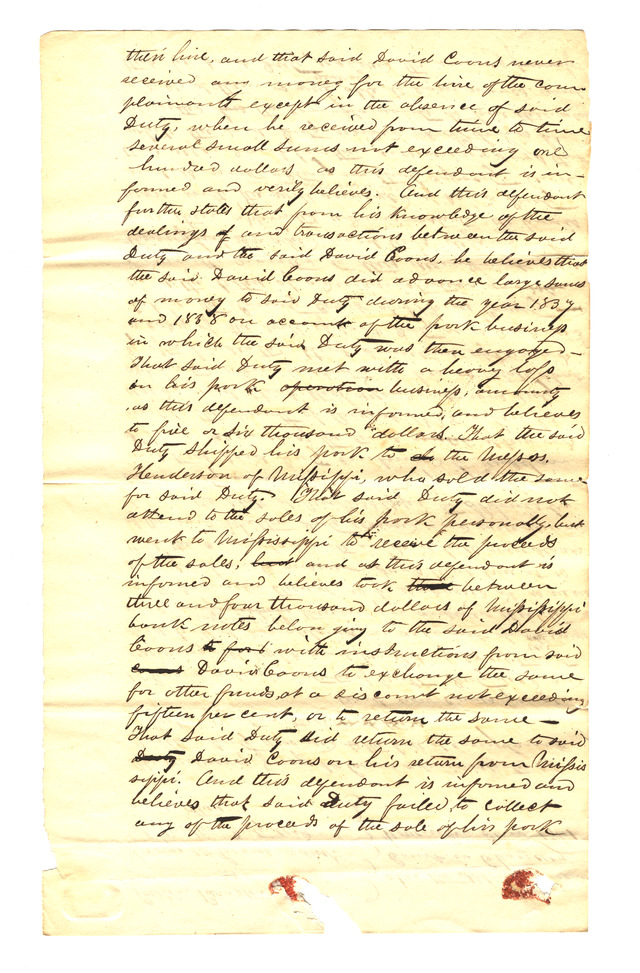 their hire, and that said David Coons never
received any money for the hire of the com
plainants except in the absence of said
Duty, when he received from time to time
several small sums not exceeding one
hundred dollars as this defendant is in-
formed and verily believes. And this defendant
further states that from his knowledge of the
dealings of and transactions between the said
Duty and the said David Coons, he believes that
the said David Coons did advance large sums
of money to said Duty during the year 1837
and 1838 on account of the pork business
in which the said Duty was then engaged -
That said Duty met with a heavy loss
on his pork operation business, amounting
as this defendant is informed, and believes
to five or six thousand dollars. That the said
Duty shipped his pork to the Messrs.
Henderson of Mississippi, who sold the same
for said Duty. That said Duty did not
attend to the sales of his pork personally, but
went to Mississippi to receive the proceeds
of the sales, but and as this defendant is
informed and believes took that between
three and four thousand dollars of Mississippi
bank notes belonging to the said David
Coons to for with instructions from said
Coons David Coons to exchange the same
for other funds, at a discount not exceeding
fifteen per cent, or to return the same -
That said Duty did return the same to said
Duty David Coons on his return from Missis
sippi. And this defendant is informed and
believes that said Duty failed to collect
any of the proceeds of the sale of his pork